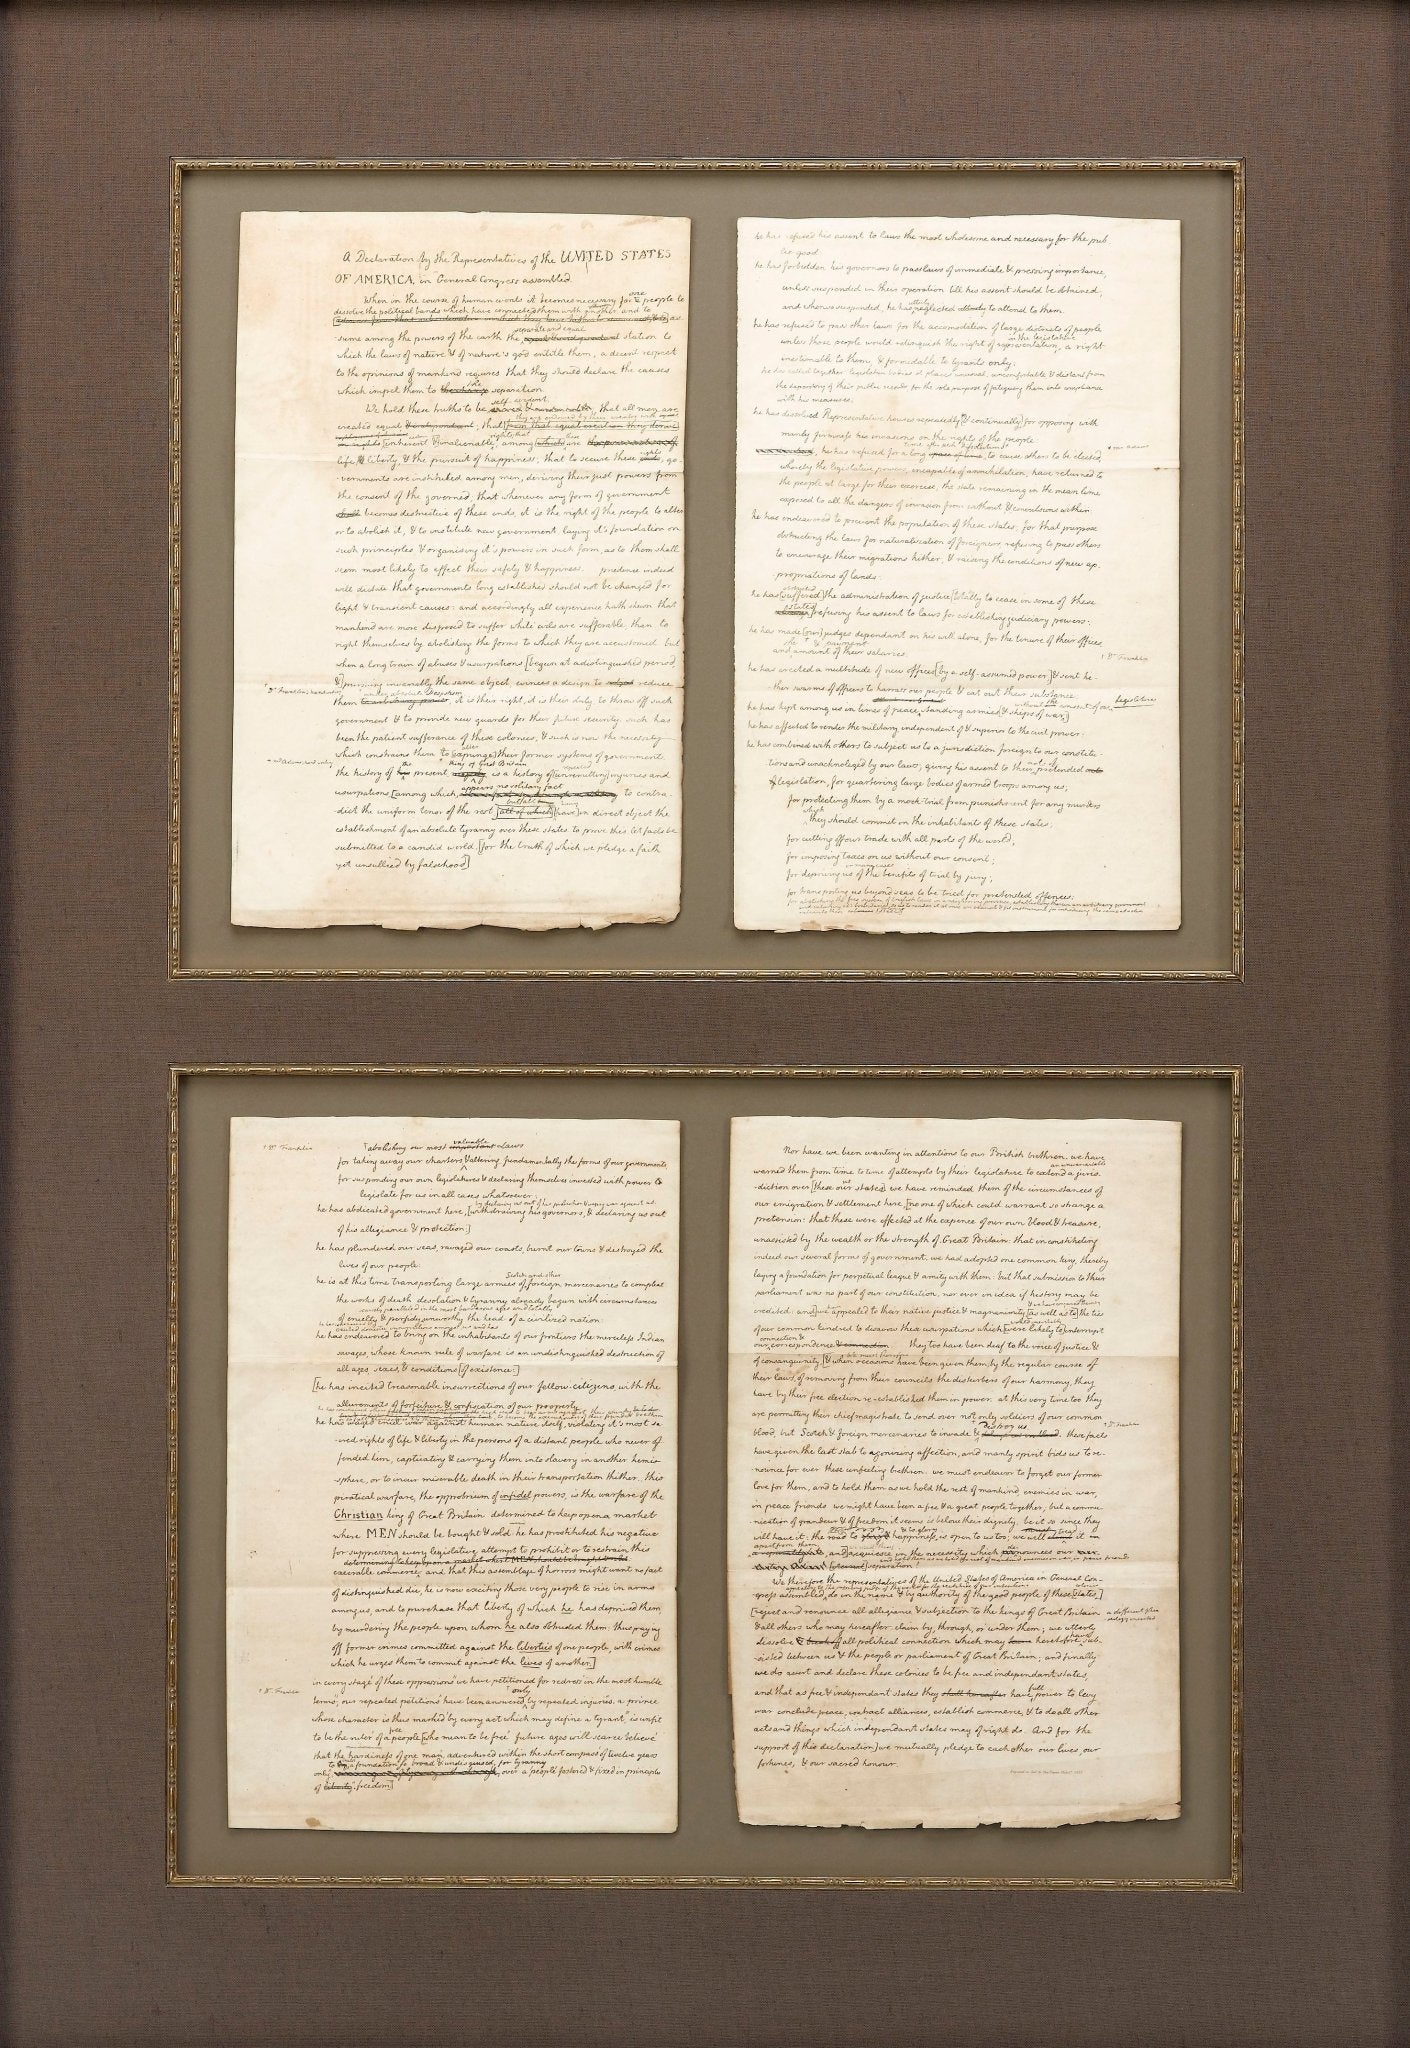 A Declaration by the Representatives of the UNITED STATES
OF AMERICA, in General Congress assembled.
When in the course of human events it becomes necessary for one people to
dissolve the political bands which have connected them with another, and to
as-
separate and equal
-sume among the powers of the earth the station to
which the laws of nature & of nature's god entitle them, a decent respect
to the opinions of mankind requires that they should declare the causes
the
which impel them to separation.
self-evident
We hold these truths to be that all men are
created equal that
inherent & inalienable among
life & liberty, & the pursuit of happiness; that to secure these rights, go-
-vernments are instituted among men, deriving their just powers from
the consent of the governed; that whenever any form of government
becomes destructive of these ends, it is the right of the people to alter
or to abolish it, & to institute new government, laying it's foundation on
such principles & organising it's powers in such form, as to them shall
seem most likely to effect their safety & happiness. prudence indeed
will dictate that governments long established should not be changed for
light & transient causes: and accordingly all experience hath shewn that
mankind are more disposed to suffer while evils are sufferable, than to
right themselves by abolishing the forms to which they are accustomed. but
when a long train of abuses & usurpations [begun at a distinguished period,
&] pursuing invariably the same object, evinces a design to reduce
* Dr. Franklin's handwriting
under absolute despotism
them it is their right, it is their duty, to throw off such
government & to provide new guards for their future security. such has
been the patient sufferance of these colonies; & such is now the necessity
alter
which constrains them to [expunge] their former systems of government.
King of Great Britain
the history of the present is a history of [unremitting] injuries and
appears no solitary fact
usurpations, [among which, to contra-
-dict the uniform tenor of the rest [all of which] [have] in direct object the
establishment of an absolute tyranny over these states. to prove this let facts be
submitted to a candid world, [for the truth of which we pledge a faith
yet unsullied by falsehood]
he has refused his assent to laws the most wholesome and necessary for the pub-
-lic good:
he has forbidden his governors to pass laws of immediate & pressing importance,
unless suspended in their operation till his assent should be obtained;
and when so suspended, he has neglected utterly to attend to them.
he has refused to pass other laws for the accomodation of large districts of people
in the legislature
unless those people would relinquish the right of representation, a right
inestimable to them, & formidable to tyrants only:
he has called together legislative bodies at places unusual, uncomfortable & distant from
the depository of their public records for the sole purpose of fatiguing them into compliance
with his measures.
he has dissolved Representative houses repeatedly [& continually] for opposing with
manly firmness his invasions on the rights of the people:
he has refused for a long to cause others to be elected,
whereby the legislative powers, incapable of annihilation, have returned to
the people at large for their exercise, the state remaining in the mean time
exposed to all the dangers of invasion from without & convulsions within:
he has endeavored to prevent the population of these states; for that purpose
obstructing the laws for naturalization of foreigners, refusing to pass others
to encourage their migrations hither, & raising the conditions of new ap-
-propriations of lands:
he has [suffered] the administration of justice [totally to cease in some of these
refusing his assent to laws for establishing judiciary powers:
he has made [our] judges dependant on his will alone, for the tenure of their offices,
and amount of their salaries:
† Dr. Franklin
he has erected a multitude of new offices [by a self-assumed power,] & sent hi-
-ther swarms of officers to harrass our people & eat out their substance
he has kept among us in times of peace, standing armies [& ships of war]
he has affected to render the military, independant of & superior to the civil power:
he has combined with others to subject us to a jurisdiction foreign to our constitu-
-tions and unacknoleged by our laws; giving his assent to their pretended
legislation, for quartering large bodies of armed troops among us;
for protecting them by a mock-trial from punishment for any murders
which
they should commit on the inhabitants of these states;
for cutting off our trade with all parts of the world;
for imposing taxes on us without our consent;
in many cases
for depriving us of the benefits of trial by jury;
for transporting us beyond seas to be tried for pretended offences:
† Dr. Franklin
valuable
† abolishing our most important Laws
for taking away our charters & altering fundamentally the forms of our governments;
for suspending our own legislatures & declaring themselves invested with power to
legislate for us in all cases whatsoever.
he has abdicated government here, [withdrawing his governors, & declaring us out
of his allegiance & protection:]
he has plundered our seas, ravaged our coasts, burnt our towns & destroyed the
lives of our people:
Scotch and other
he is at this time transporting large armies of foreign mercenaries to compleat
the works of death, desolation & tyranny already begun with circumstances
scarcely paralleled in the most barbarous ages and totally
of cruelty & perfidy unworthy the head of a civilized nation:
he has endeavored to bring on the inhabitants of our frontiers the merciless Indian
savages, whose known rule of warfare is an undistinguished destruction of
all ages, sexes, & conditions [of existence:]
[he has incited treasonable insurrections of our fellow-citizens, with the
allurements of forfeiture & confiscation of our property.
he has waged cruel war against human nature itself, violating it's most sa-
-cred rights of life & liberty in the persons of a distant people who never of-
fended him, captivating & carrying them into slavery in another hemis-
-sphere, or to incur miserable death in their transportation thither. this
piratical warfare, the opprobrium of infidel powers, is the warfare of the
Christian king of Great Britain. determined to keep open a market
where MEN should be bought & sold he has prostituted his negative
for suppressing every legislative attempt to prohibit or to restrain this
determining to keep open a market where MEN should be bought & sold
execrable commerce: and that this assemblage of horrors might want no fact
of distinguished die, he is now exciting those very people to rise in arms
among us, and to purchase that liberty of which he has deprived them,
by murdering the people upon whom he also obtruded them: thus paying
off former crimes committed against the liberties of one people, with crimes
which he urges them to commit against the lives of another.]
in every stage of these oppressions we have petitioned for redress in the most humble
only
terms; our repeated petitions have been answered by repeated injuries. a prince
whose character is thus marked by every act which may define a tyrant, is unfit
free
to be the ruler of a people [who mean to be free. future ages will scarce believe
that the hardiness of one man, adventured within the short compass of twelve years
only, over a people fostered & fixed in principles
of liberty freedom]
Nor have we been wanting in attentions to our British brethren. we have
warned them from time to time of attempts by their legislature to extend a juris-
an unwarrantable
-diction over [these our states]. we have reminded them of the circumstances of
our emigration & settlement here, [no one of which could warrant so strange a
pretension: that these were effected at the expence of our own blood & treasure,
unassisted by the wealth or the strength of Great Britain: that in constituting
indeed our several forms of government, we had adopted one common king, thereby
laying a foundation for perpetual league & amity with them: but that submission to their
parliament was no part of our constitution, nor ever in idea if history may be
credited: and] we appealed to their native justice & magnanimity [as well as to] the ties
of our common kindred to disavow these usurpations which [were likely to] interrupt
connection &
our correspondence they too have been deaf to the voice of justice &
of consanguinity, [& when occasions have been given them, by the regular course of
their laws, of removing from their councils the disturbers of our harmony, they
have by their free election re-established them in power. at this very time too they
are permitting their chief magistrate to send over not only soldiers of our common
† Dr. Franklin
destroy us
blood, but Scotch & foreign mercenaries to invade & these facts
have given the last stab to agonizing affection, and manly spirit bids us to re-
-nounce for ever these unfeeling brethren. we must endeavor to forget our former
love for them, and to hold them as we hold the rest of mankind, enemies in war,
in peace friends. we might have been a free & a great people together; but a commu-
-nication of grandeur & of freedom it seems is below their dignity. be it so, since they
will have it: the road to happiness is open to us too; we will it
and] acquiesce in the necessity which our
separation!
We therefore the representatives of the United States of America in General Con-
-gress assembled, do in the name & by authority of the good people of these states,
[reject and renounce all allegiance & subjection to the kings of Great Britain
& all others who may hereafter claim by, through, or under them; we utterly
dissolve all political connection which may heretofore sub-
-sisted between us & the people or parliament of Great Britain; and finally
we do assert and declare these colonies to be free and independant states,
full
and that as free & independant states they shall hereafter have power to levy
war, conclude peace, contract alliances, establish commerce, & to do all other
acts and things which independant states may of right do. And for the
support of this declaration] we mutually pledge to each other our lives, our
fortunes, & our sacred honour.